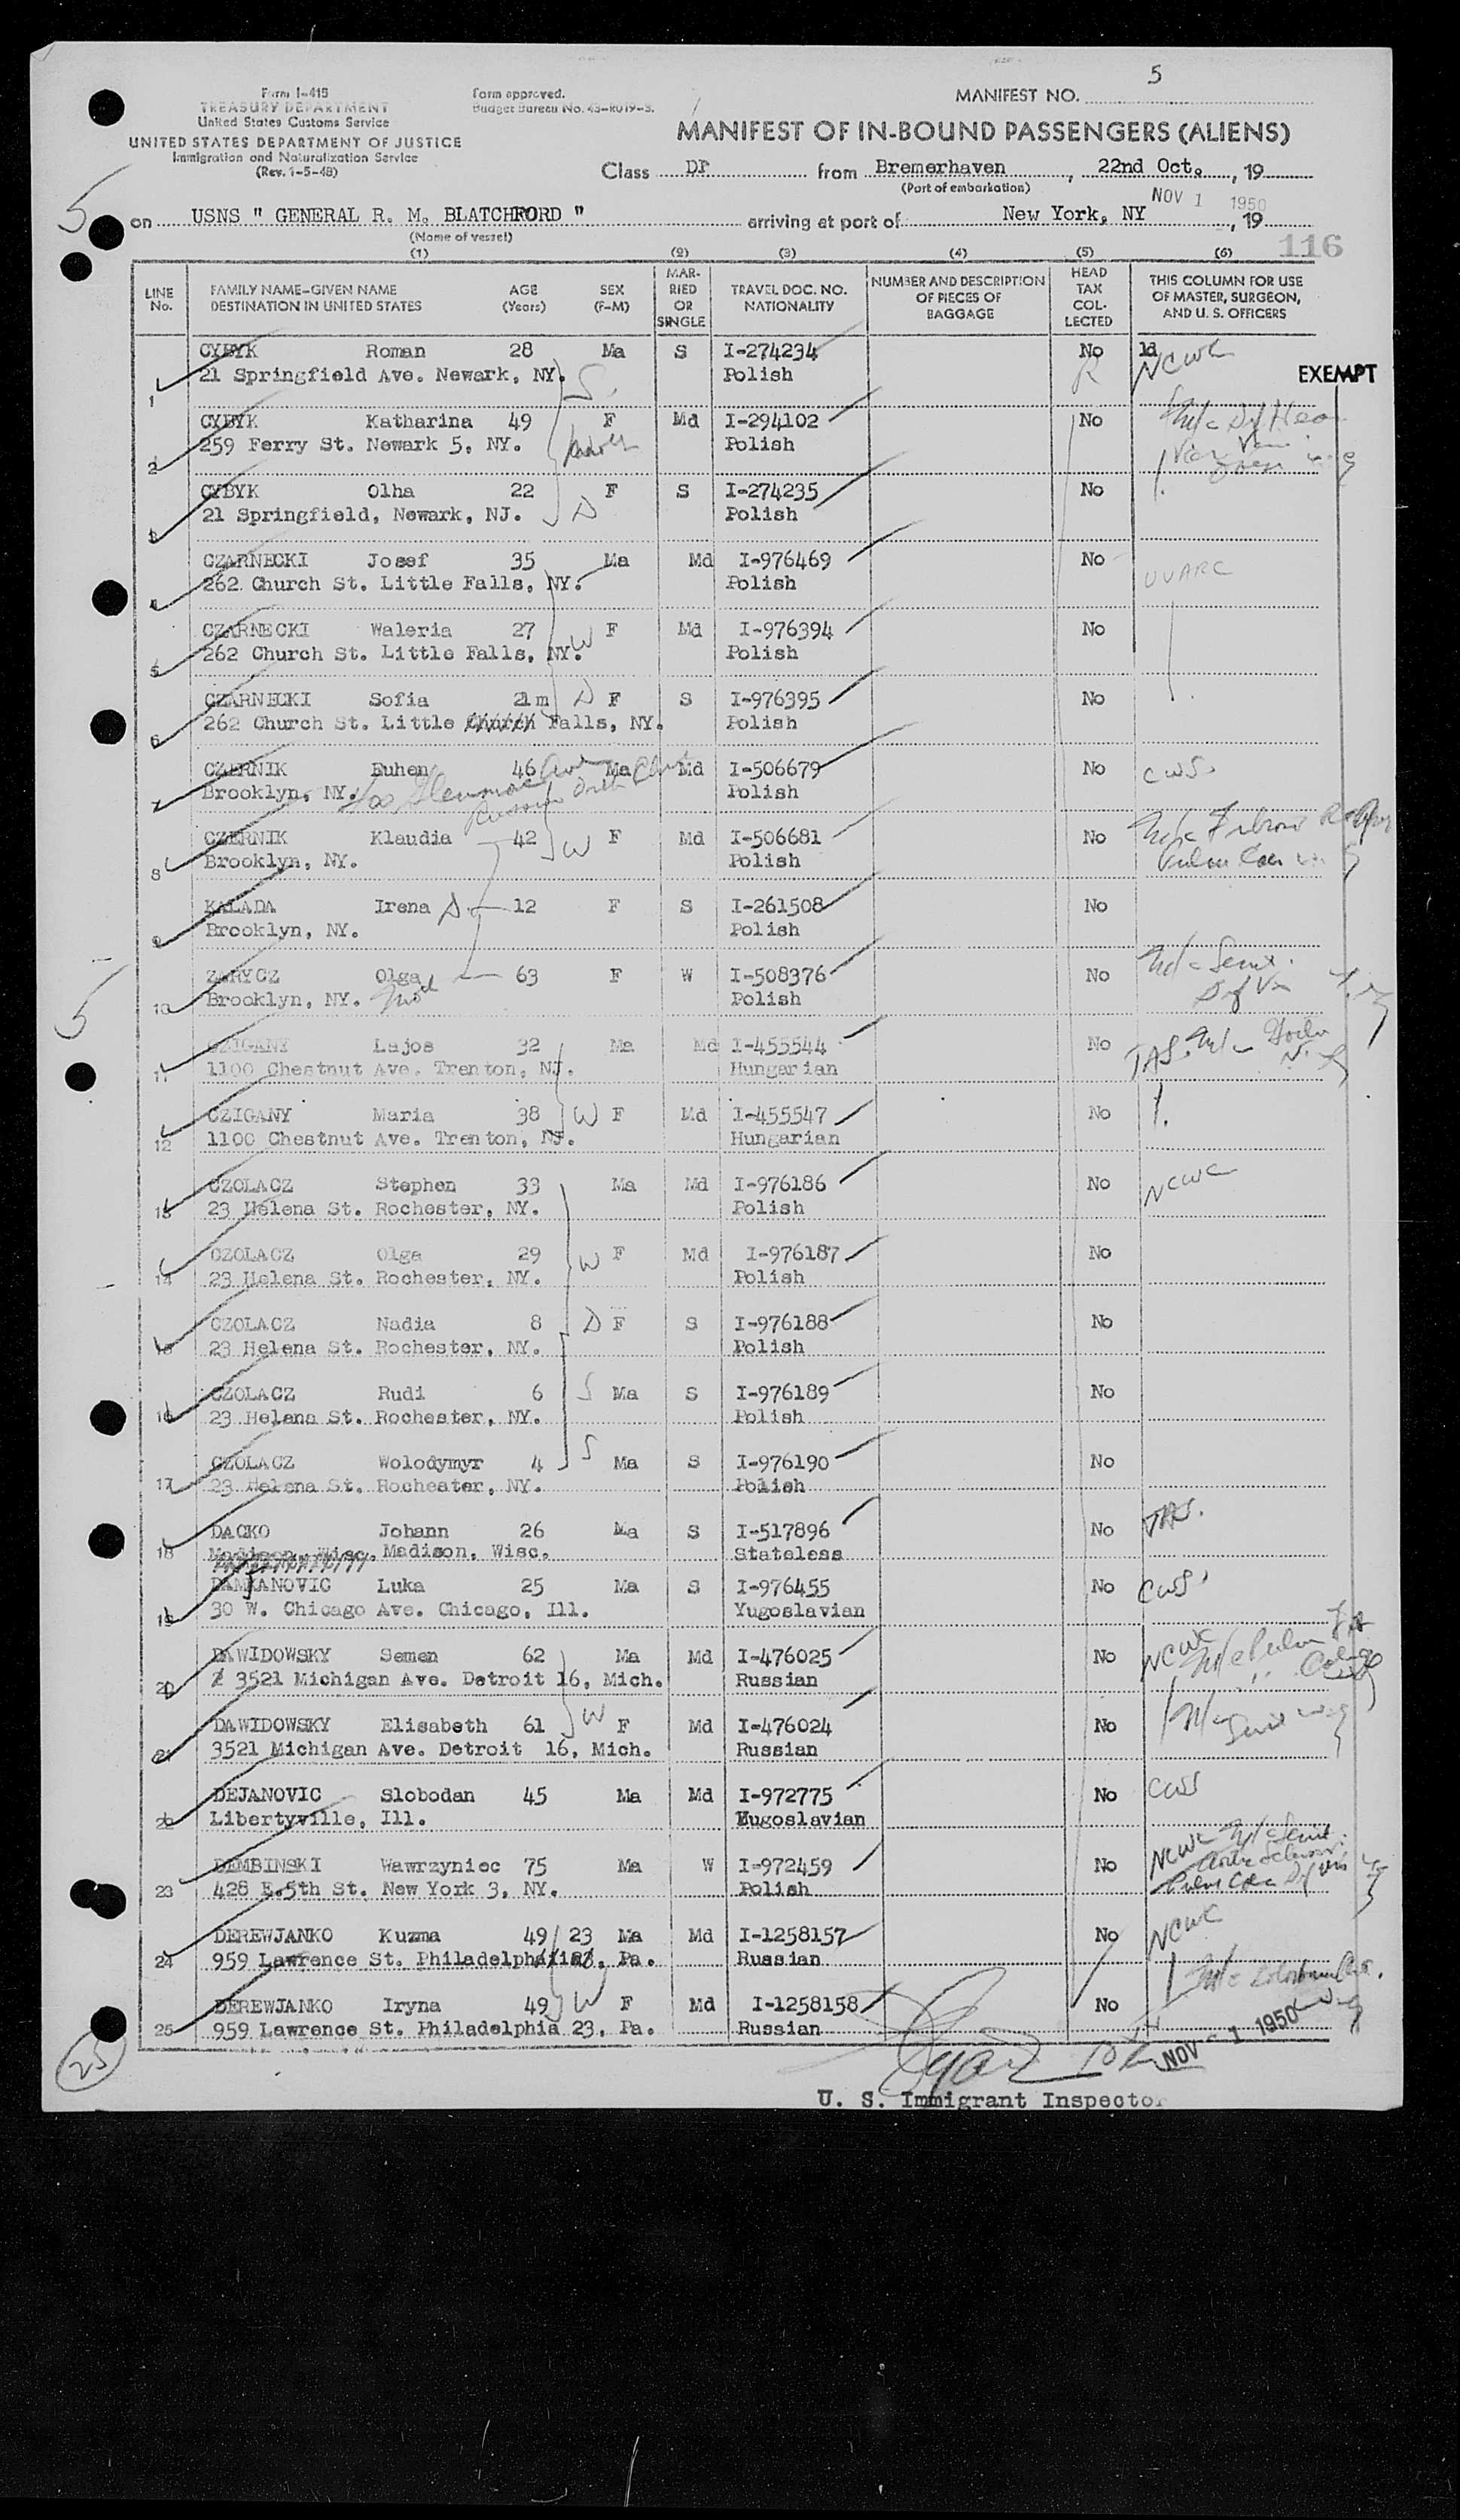 5
Form I-415
TREASURY DEPARTMENT
United States Customs Service
UNITED STATES DEPARTMENT OF JUSTICE
Immigration and Naturalization Service
(Rev. 1-5-48)
Form approved.
Budget Bureau No. 43-R019-3.
MANIFEST NO.
MANIFEST OF IN-BOUND PASSENGERS (ALIENS)
Class DP from Bremerhaven, 22nd Oct., 19
(Port of embarkation)
5
on USNS " GENERAL R. M. BLATCHFORD " arriving at port of New York, NY NOV 1 1950, 19
(Name of vessel)
116
(1) (2) (3) (4) (5) (6)
LINE No. FAMILY NAME-GIVEN NAME DESTINATION IN UNITED STATES AGE (Years) SEX (F-M) MARRIED OR SINGLE TRAVEL DOC. NO. NATIONALITY NUMBER AND DESCRIPTION OF PIECES OF BAGGAGE HEAD TAX COLLECTED THIS COLUMN FOR USE OF MASTER, SURGEON, AND U. S. OFFICERS
CYBYK Roman 28 Ma S I-274234 No NCWC
1 21 Springfield Ave. Newark, NY. S. Polish EXEMPT
CYBYK Katharina 49 F Md I-294102 No
2 259 Ferry St. Newark 5, NY. Polish
CYBYK Olha 22 F S I-274235 No
3 21 Springfield, Newark, NJ. D Polish
CZARNECKI Josef 35 Ma Md I-976469 No
4 262 Church St. Little Falls, NY. Polish UUARC
CZARNECKI Waleria 27 W F Md I-976394 No
5 262 Church St. Little Falls, NY. Polish
CZARNECKI Sofia 21m D F S I-976395 No
6 262 Church St. Little Church Falls, NY. Polish
CZERNIK Euhen 46 Ma Md I-506679 No CWS.
7 Brooklyn, NY. Polish
CZERNIK Klaudia 42 W F Md I-506681 No
8 Brooklyn, NY. Polish
KALADA Irena D 12 F S I-261508 No
9 Brooklyn, NY. Polish
ZARYCZ Olga 63 F W I-508376 No
10 Brooklyn, NY. Polish
5
CZIGANY Lajos 32 Ma Md I-455544 No TAS.
11 1100 Chestnut Ave. Trenton, NJ. Hungarian
CZIGANY Maria 38 W F Md I-455547 No
12 1100 Chestnut Ave. Trenton, NJ. Hungarian
CZOLACZ Stephen 33 Ma Md I-976186 No NCWC
13 23 Helena St. Rochester, NY. Polish
CZOLACZ Olga 29 W F Md I-976187 No
14 23 Helena St. Rochester, NY. Polish
CZOLACZ Nadia 8 D F S I-976188 No
15 23 Helena St. Rochester, NY. Polish
CZOLACZ Rudi 6 S Ma S I-976189 No
16 23 Helena St. Rochester, NY. Polish
CZOLACZ Wolodymyr 4 S Ma S I-976190 No
17 23 Helena St. Rochester, NY. Polish
DACKO Johann 26 Ma S I-517896 No TAS.
18 Madison, Wisc. Madison, Wisc. Stateless
DAMJANOVIC Luka 25 Ma S I-976455 No CWS.
19 30 W. Chicago Ave. Chicago, Ill. Yugoslavian
DAWIDOWSKY Semen 62 Ma Md I-476025 No NCWC
20 3521 Michigan Ave. Detroit 16, Mich. Russian
DAWIDOWSKY Elisabeth 61 W F Md I-476024 No
21 3521 Michigan Ave. Detroit 16, Mich. Russian
DEJANOVIC Slobodan 45 Ma Md I-972775 No CWS
22 Libertyville, Ill. Yugoslavian
DEMBINSKI Wawrzyniec 75 Ma W I-972459 No NCWC
23 428 E.5th St. New York 3, NY. Polish
DEREWJANKO Kuzma 49 23 Ma Md I-1258157 No NCWC
24 959 Lawrence St. Philadelphia, Pa. Russian
DEREWJANKO Iryna 49 W F Md I-1258158 No
25 959 Lawrence St. Philadelphia 23, Pa. Russian
25
NOV 1 1950
U. S. Immigrant Inspector